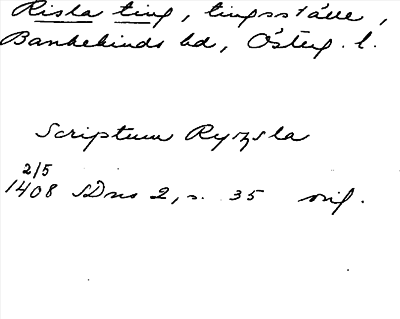 Risla ting, tingsställe,
Bankekinds hd, Österg. l.
Scriptum Ryzsla
2/5
1408 SDns 2, s. 35 orig.